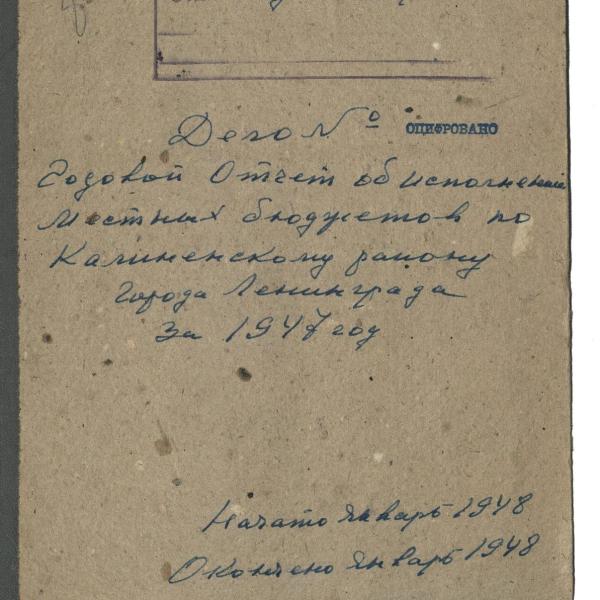 Дело №
ОЦИФРОВАНО
Годовой Отчет об исполнении
Местных бюджетов по
Калиненскому району
Города Ленинграда
За 1947 год
Начато январь 1948
Окончено январь 1948